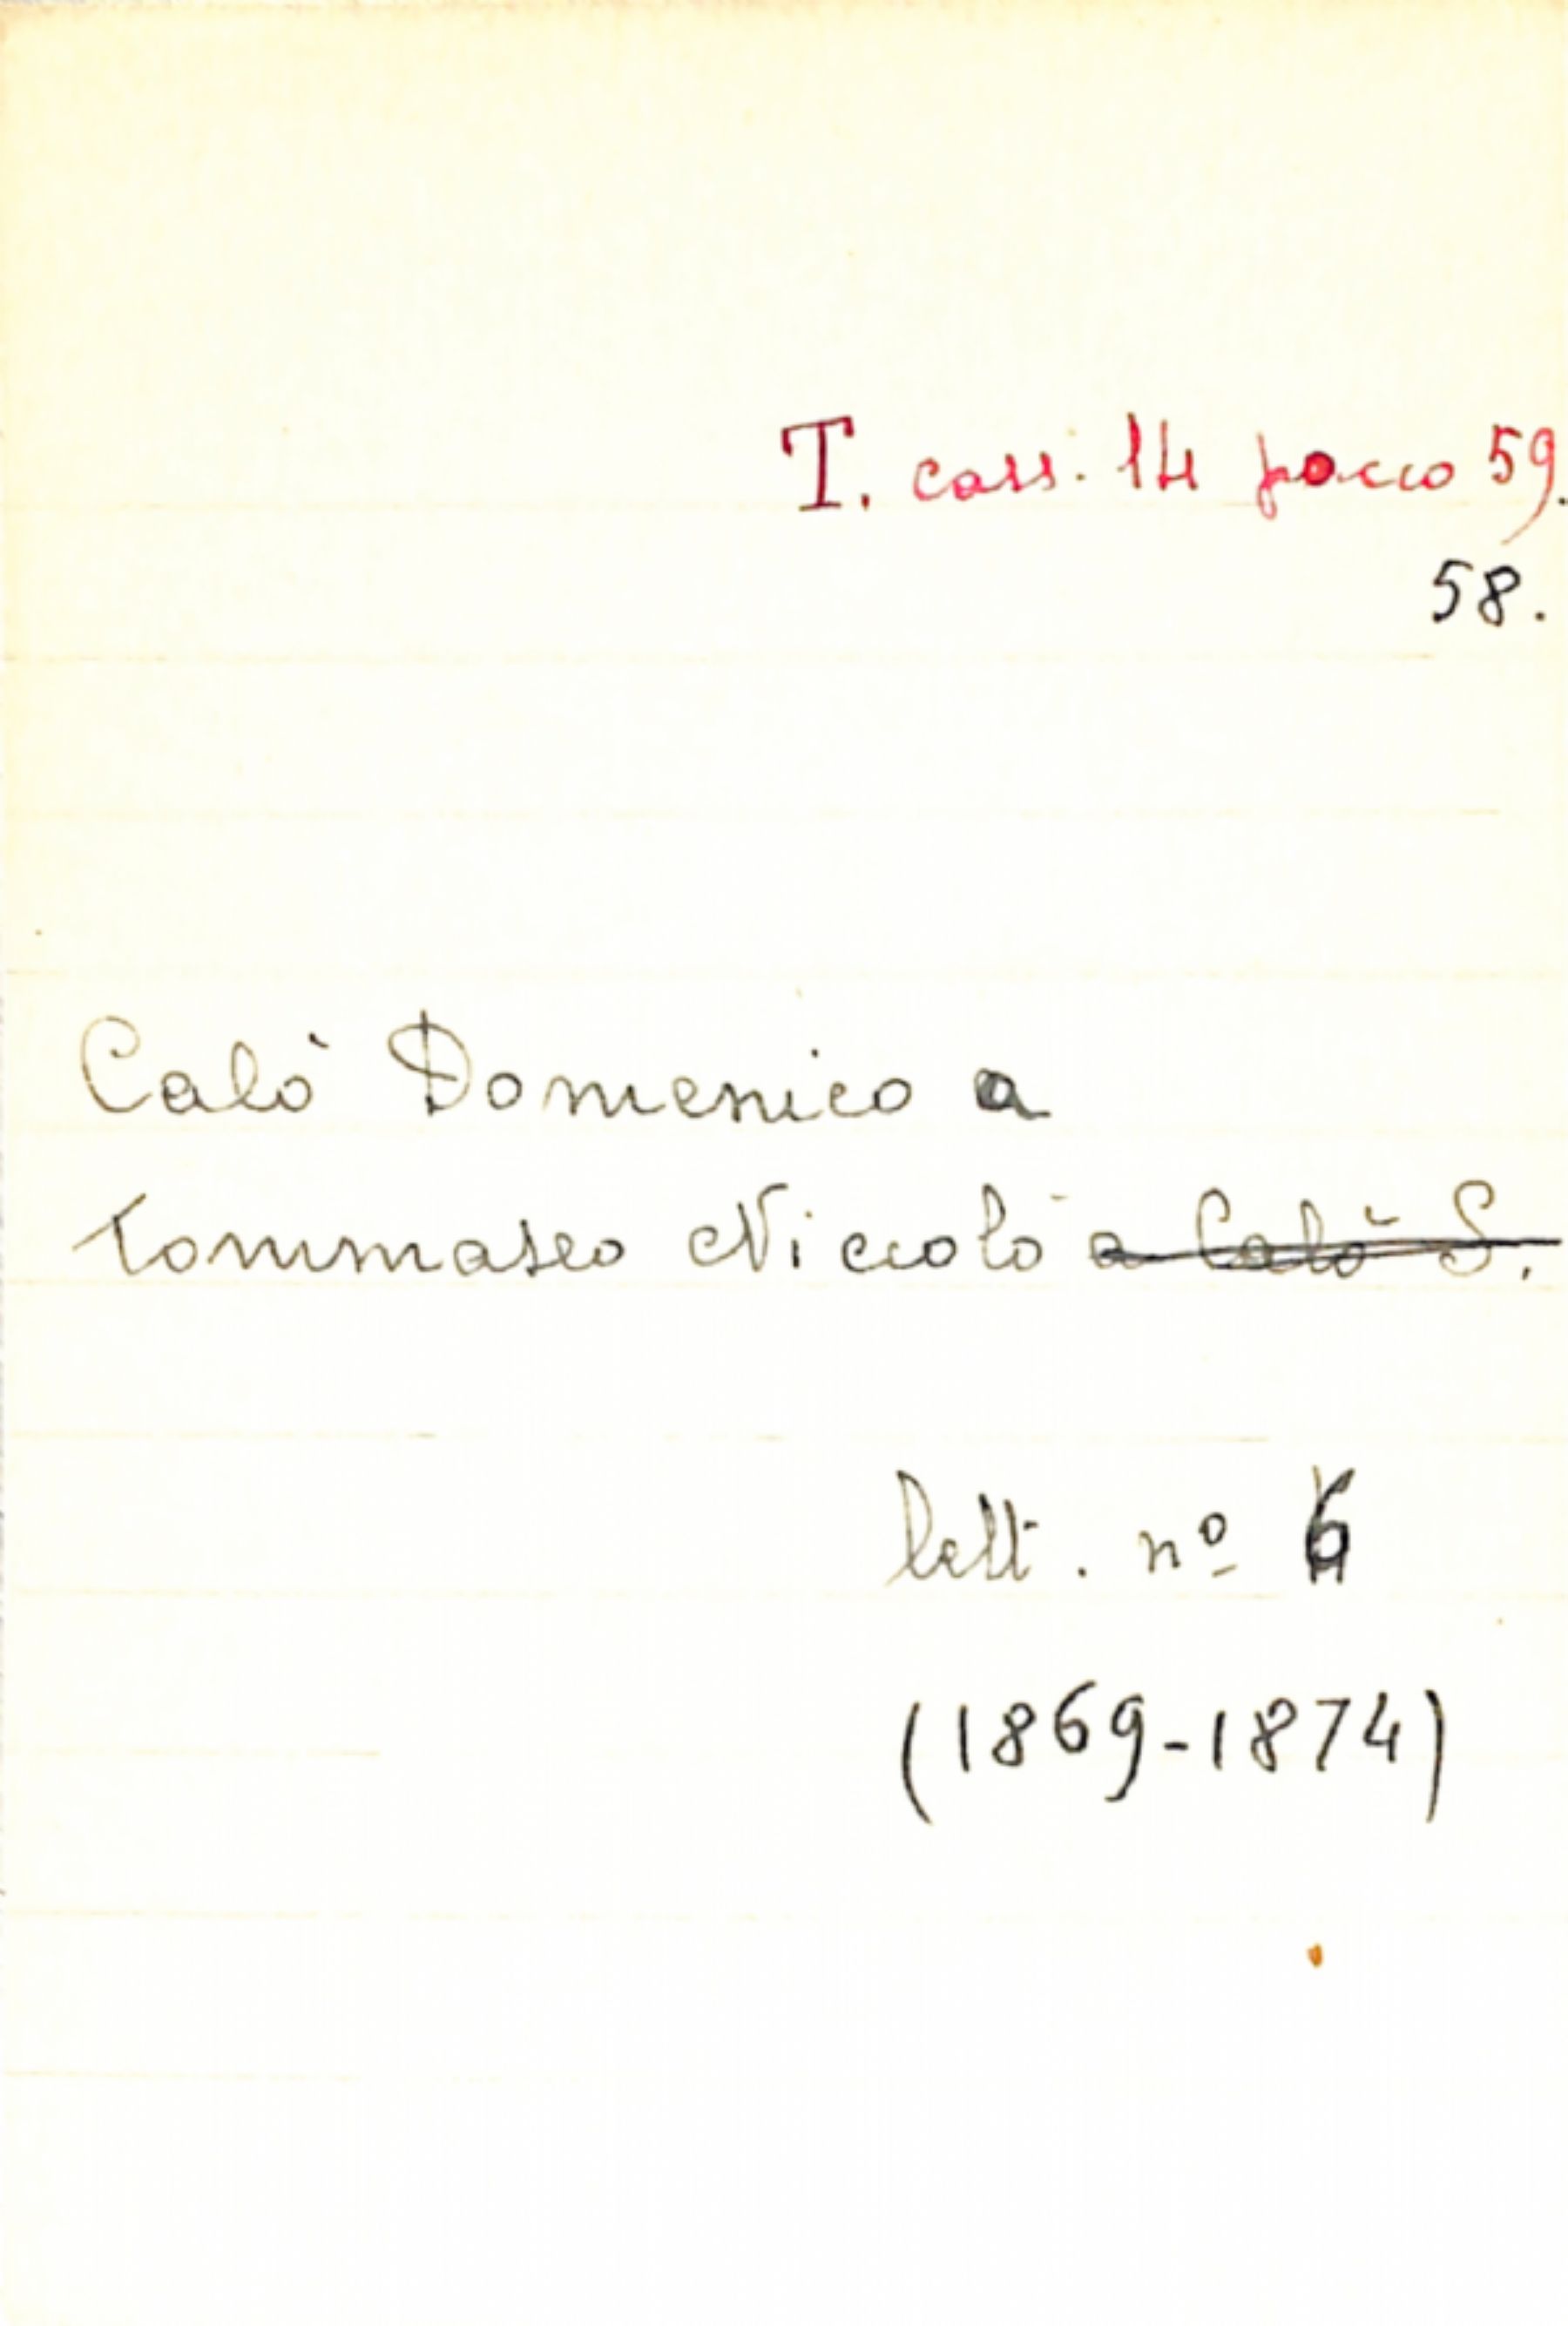 T. cass. 14 pacco 59.
58.
Calò Domenico a
Tommaseo Niccolò a Calò S.
lett. nº 6
(1869-1874)